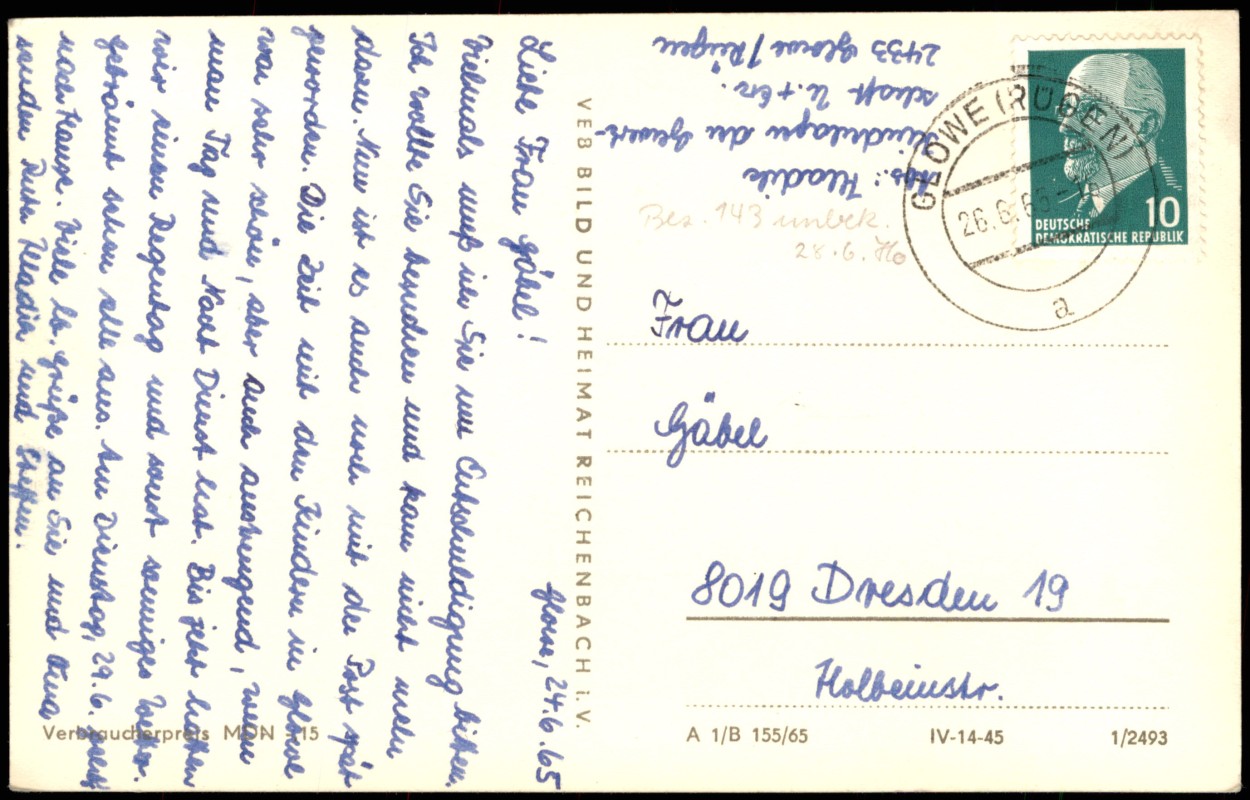 Glowe, 24.6.65
Liebe Frau Gäbel!
Vielmals muß ich Sie um Entschuldigung bitten.
Ich wollte Sie besuchen und kam nicht mehr
davon. Nun ist es auch noch mit der Post spät
geworden. Die Zeit mit den Kindern in Glowe
war sehr schön, aber auch anstrengend, wenn
man Tag und Nacht Dienst hat. Bis jetzt hatten
wir einen Regentag und sonst sonniges Wetter.
Gebräunt sehen alle aus. Am Dienstag, 29.6. geht's
nach Hause. Viele lb. Grüße an Sie und Oma
senden Ruth Hladik und Steffen.
Verbraucherpreis MDN 0,15
VEB BILD UND HEIMAT REICHENBACH i. V.
Abs.: Hladik
Kinderlager der Gewerk-
schaft U. + Erz.
2433 Glowe / Rügen
GLOWE (RÜGEN)
26.6.65
a
10
DEUTSCHE
DEMOKRATISCHE REPUBLIK
Bez. 143 unbek.
28.6. Ho
Frau
Gäbel
8019 Dresden 19
Holbeinstr.
A 1/B 155/65 IV-14-45 1/2493